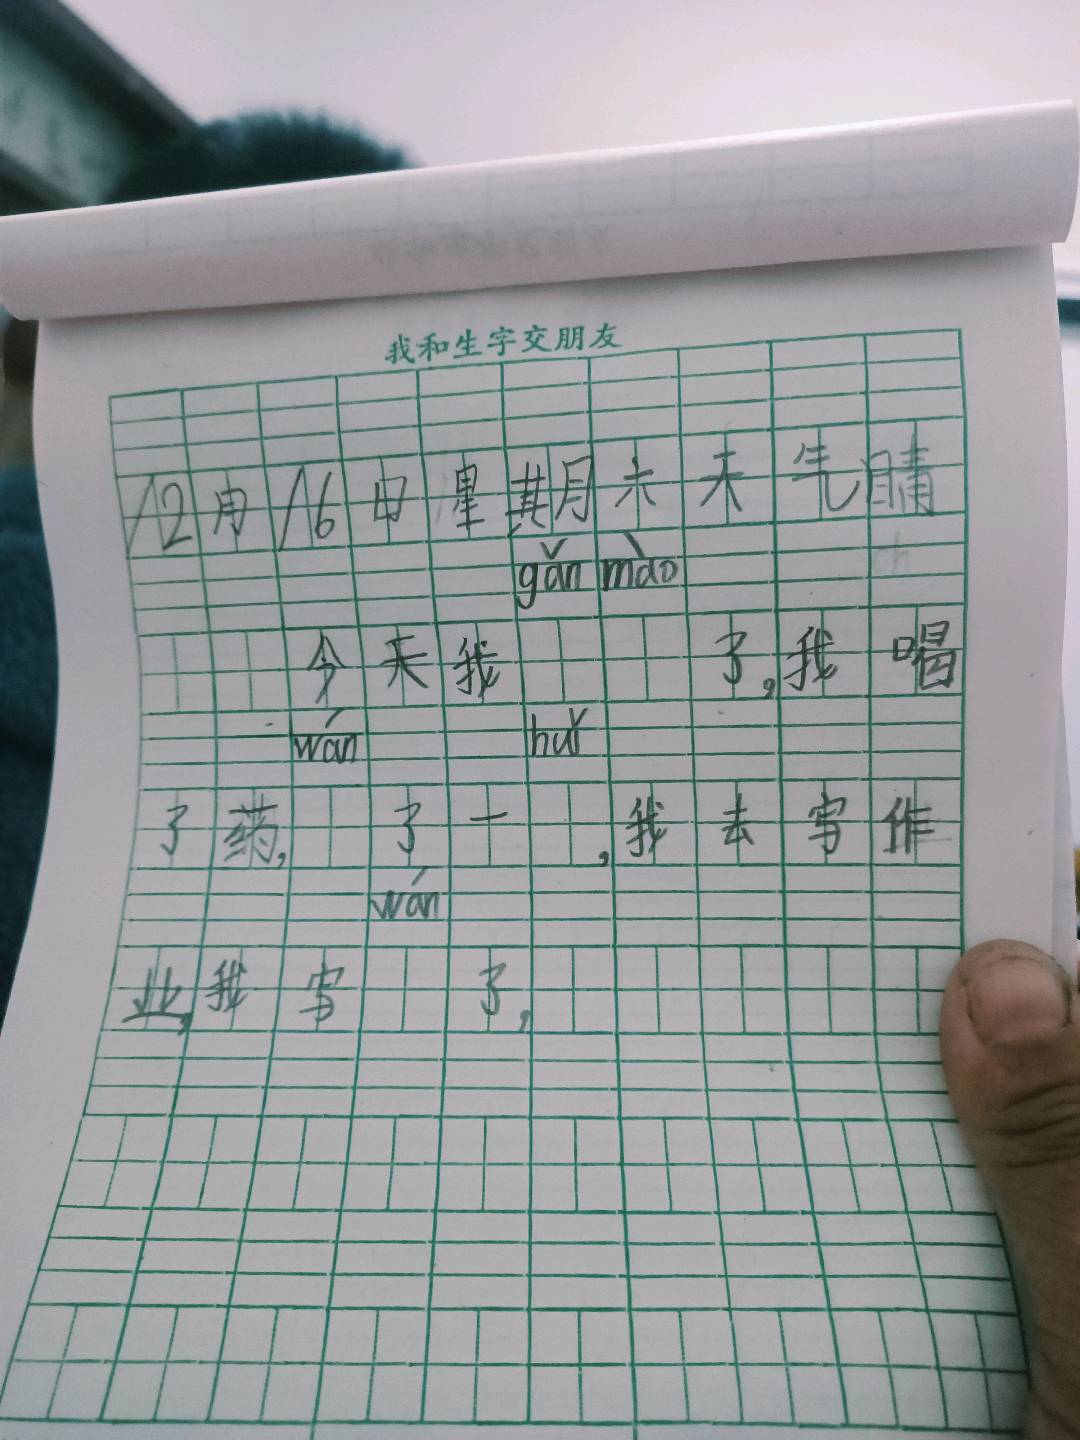 我和生字交朋友
12月16日星期六 天气晴
gǎn mào
今天我 了,我喝
wán huǐ
了药, 了一 ,我去写作
wán
业,我写 了,